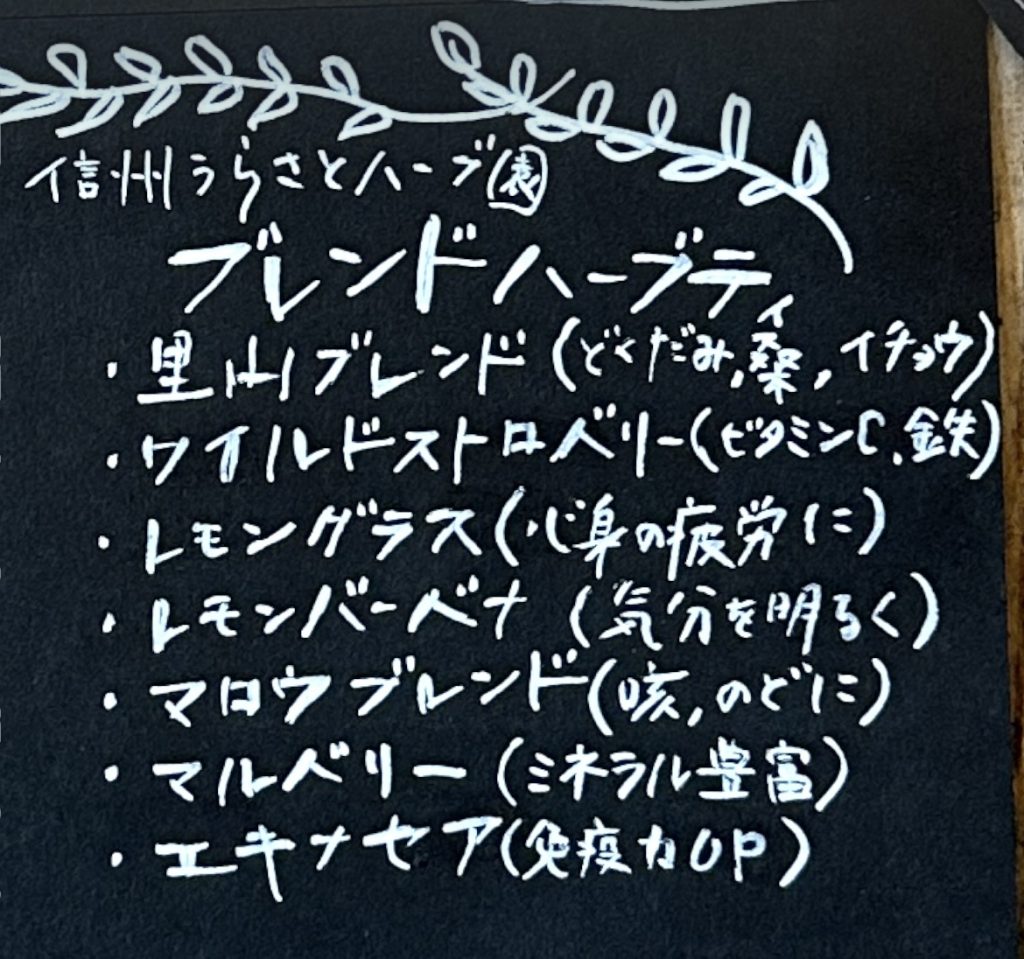 信州うらさとハーブ園
ブレンドハーブティ
・里山ブレンド(どくだみ,桑,イチョウ)
・ワイルドストロベリー(ビタミンC,鉄)
・レモングラス(心身の疲労に)
・レモンバーベナ(気分を明るく)
・マロウブレンド(咳,のどに)
・マルベリー(ミネラル豊富)
・エキナセア(免疫力UP)